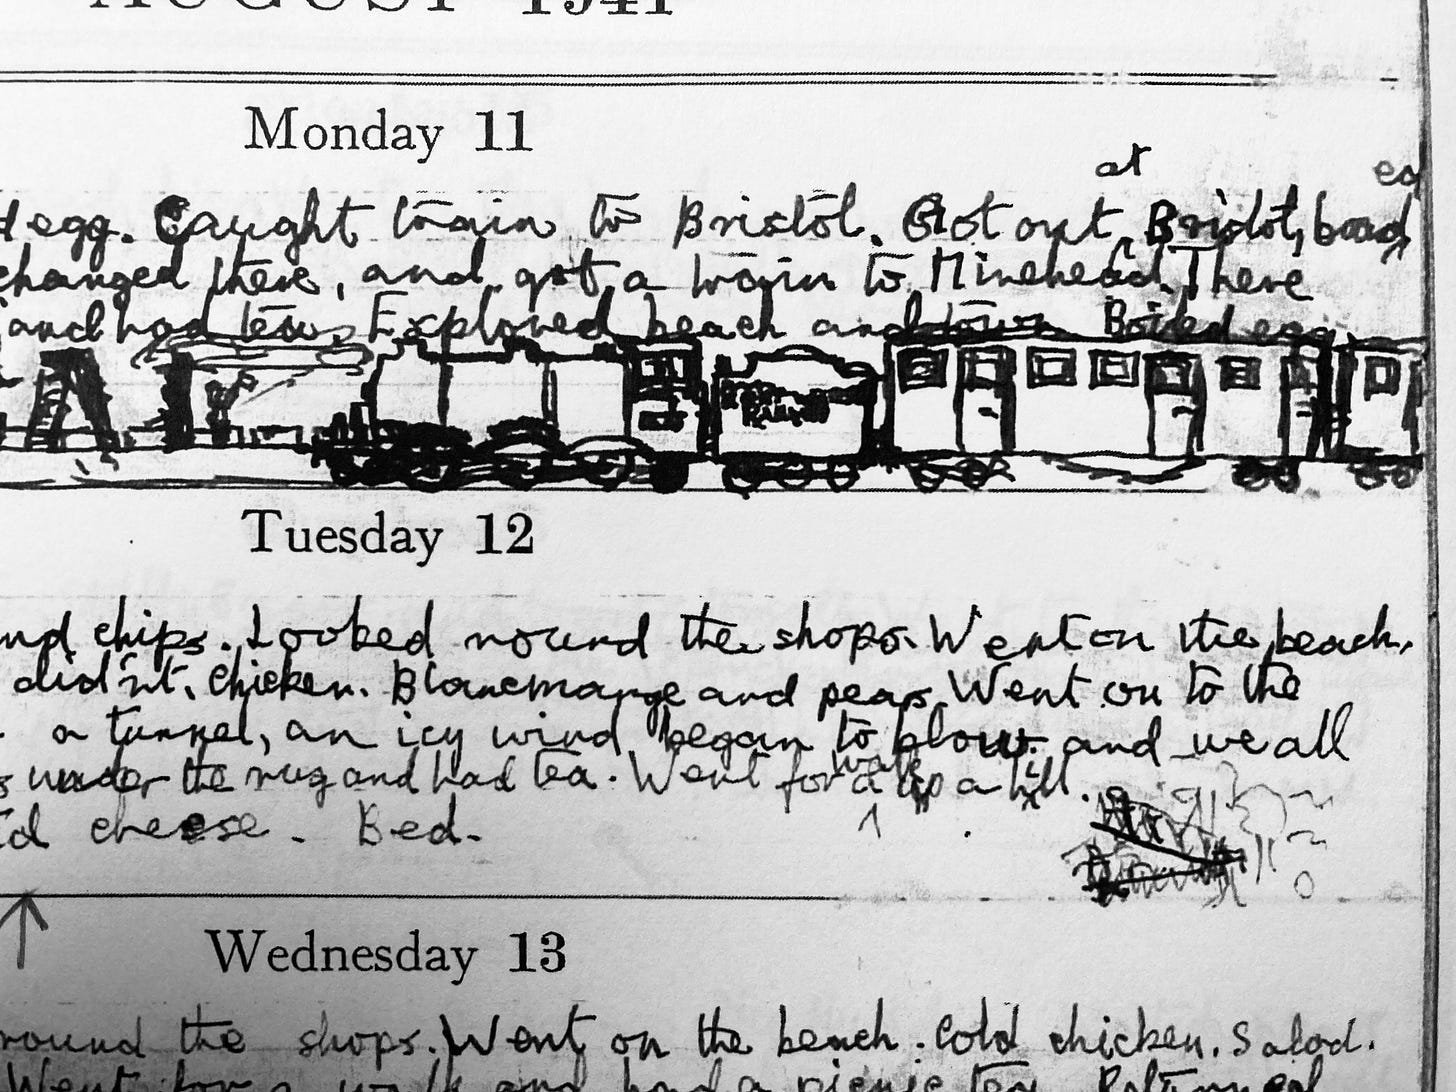 AUGUST 1941
Monday 11
at
egg. Caught train to Bristol. Got out Bristol,
changed there, and got a train to Minehead. There
and had tea. Explored beach and town Boiled egg
Tuesday 12
and chips. Looked round the shops. Went on the beach.
didn't. Chicken. Blancmange and pears. Went on to the
a tunnel, an icy wind began to blow. and we all
under the rug and had tea. Went for a walk up a hill.
cheese. Bed.
Wednesday 13
round the shops. Went on the beach. Cold chicken. Salad.
Went for a walk and had a picnic tea.